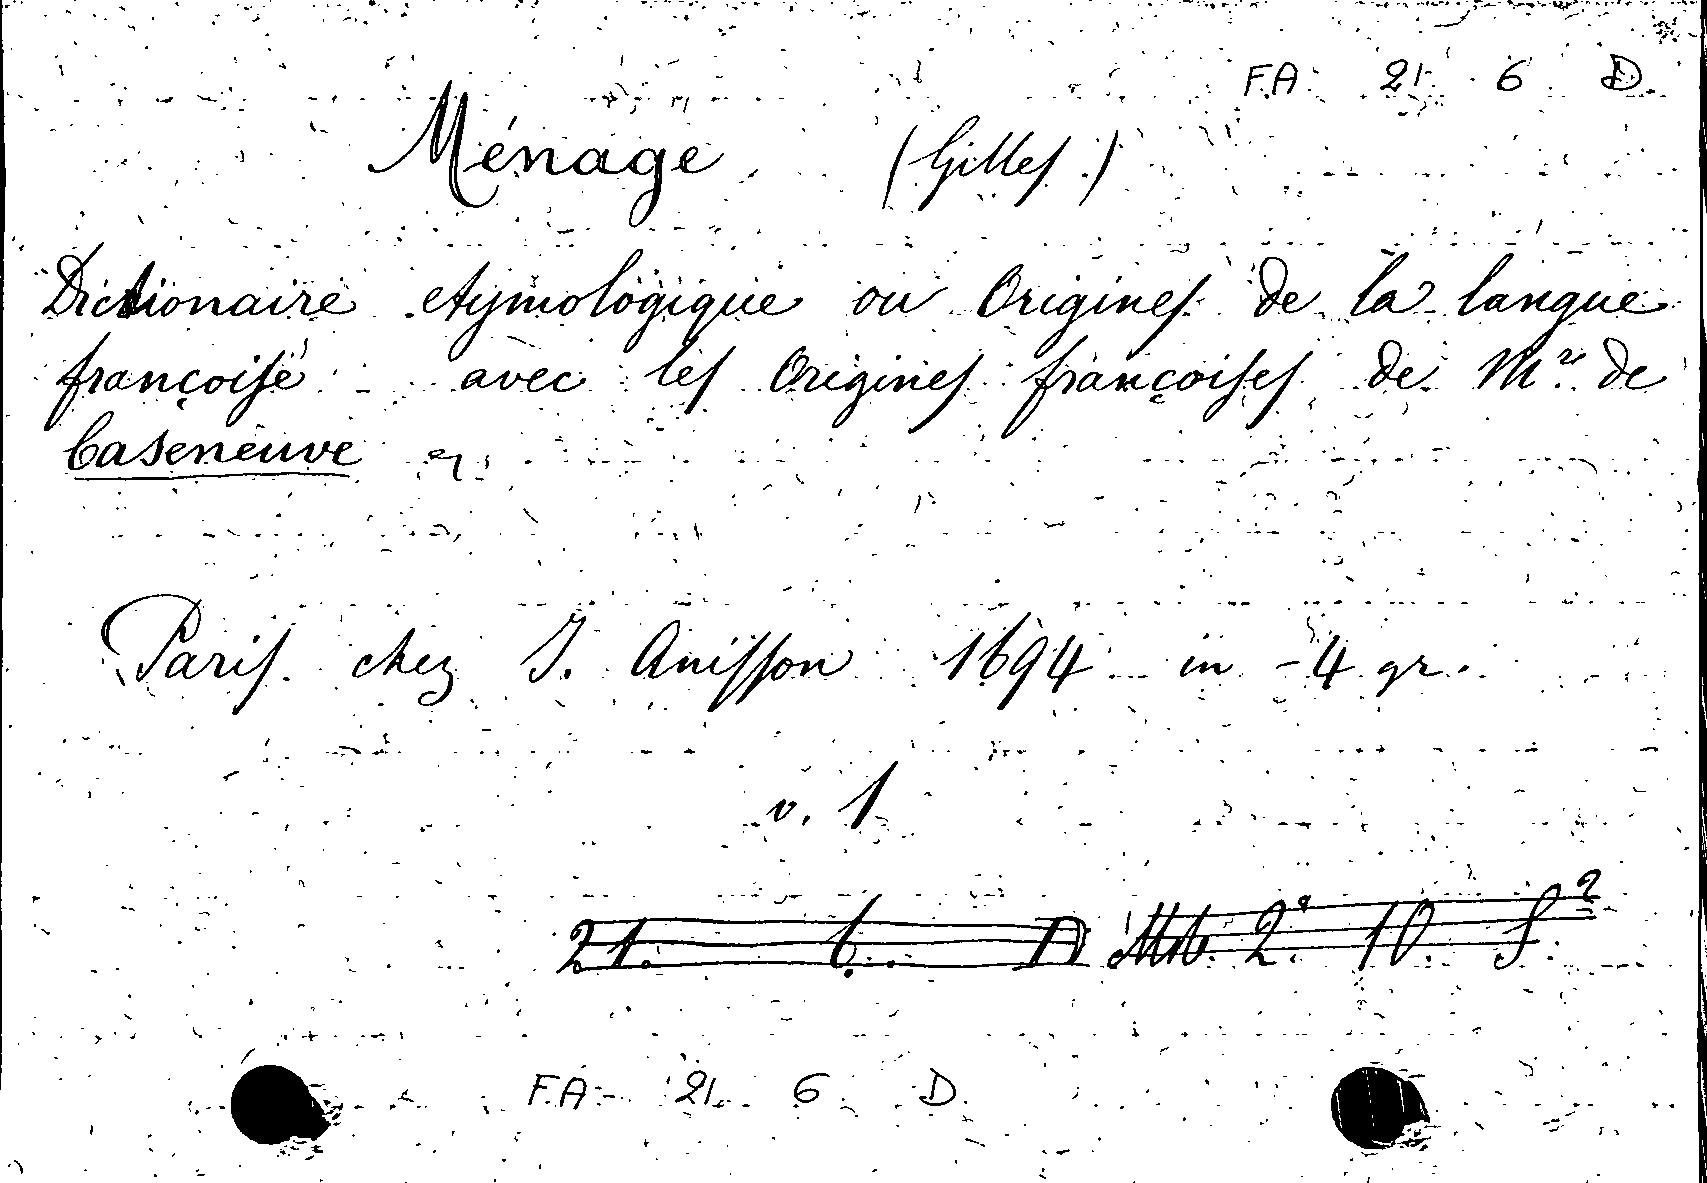 FA 21 6 D
Ménage (Gilles)
Dictionaire etymologique ou Origines de la langue
françoise avec les Origines françoises de Mr. de
Caseneuve
Paris chez J. Anisson 1694 in -4 gr.
v. 1
21. 6. D 2. 10.
FA 21 6 D